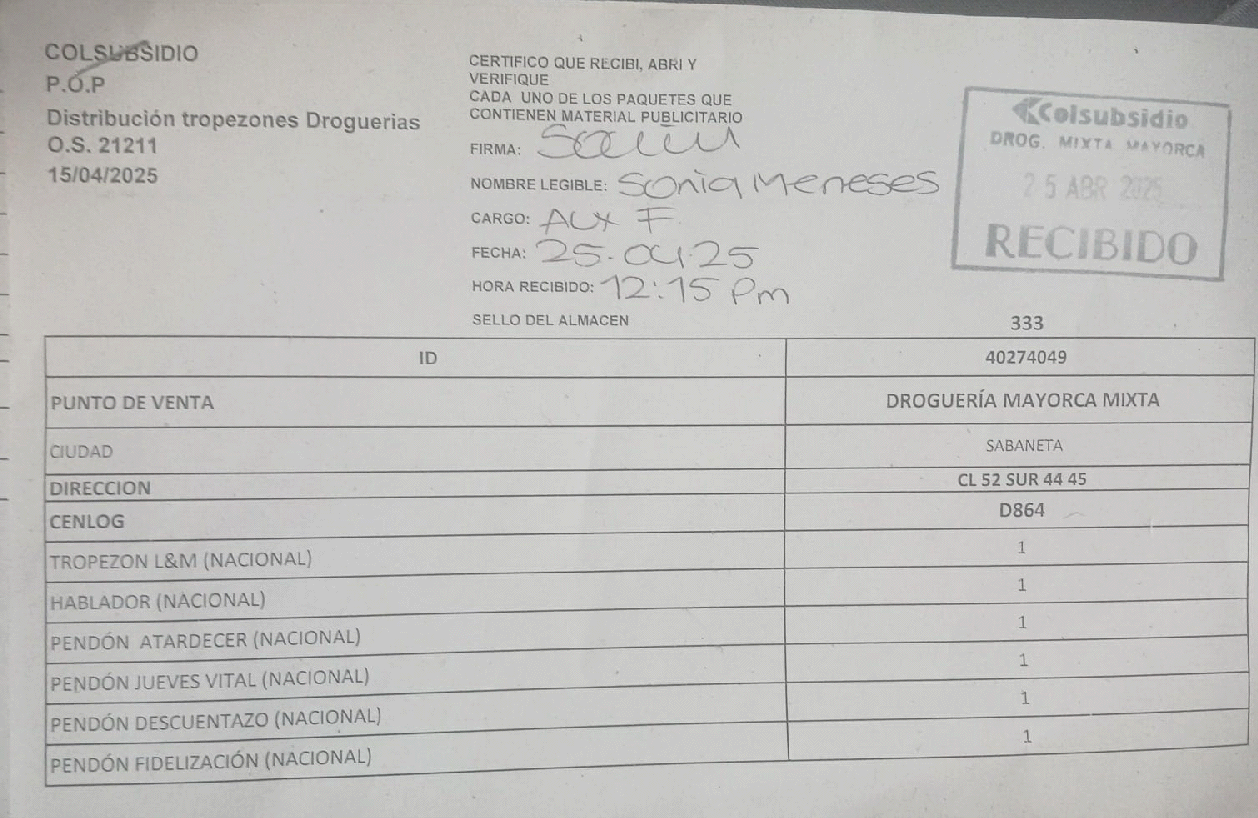 COLSUBSIDIO
P.O.P
Distribución tropezones Droguerias
O.S. 21211
15/04/2025
CERTIFICO QUE RECIBI, ABRI Y
VERIFIQUE
CADA UNO DE LOS PAQUETES QUE
CONTIENEN MATERIAL PUBLICITARIO
FIRMA:
NOMBRE LEGIBLE: Sonia Meneses
CARGO: AUX F.
FECHA: 25-04-25
HORA RECIBIDO: 12:15 Pm
SELLO DEL ALMACEN
Colsubsidio
DROG. MIXTA MAYORCA
25 ABR 2025
RECIBIDO
333
ID 40274049
PUNTO DE VENTA DROGUERÍA MAYORCA MIXTA
CIUDAD SABANETA
DIRECCION CL 52 SUR 44 45
CENLOG D864
TROPEZON L&M (NACIONAL) 1
HABLADOR (NACIONAL) 1
PENDÓN ATARDECER (NACIONAL) 1
PENDÓN JUEVES VITAL (NACIONAL) 1
PENDÓN DESCUENTAZO (NACIONAL) 1
PENDÓN FIDELIZACIÓN (NACIONAL) 1